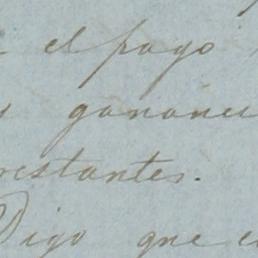 el pago
gananci
restantes.
Digo que e